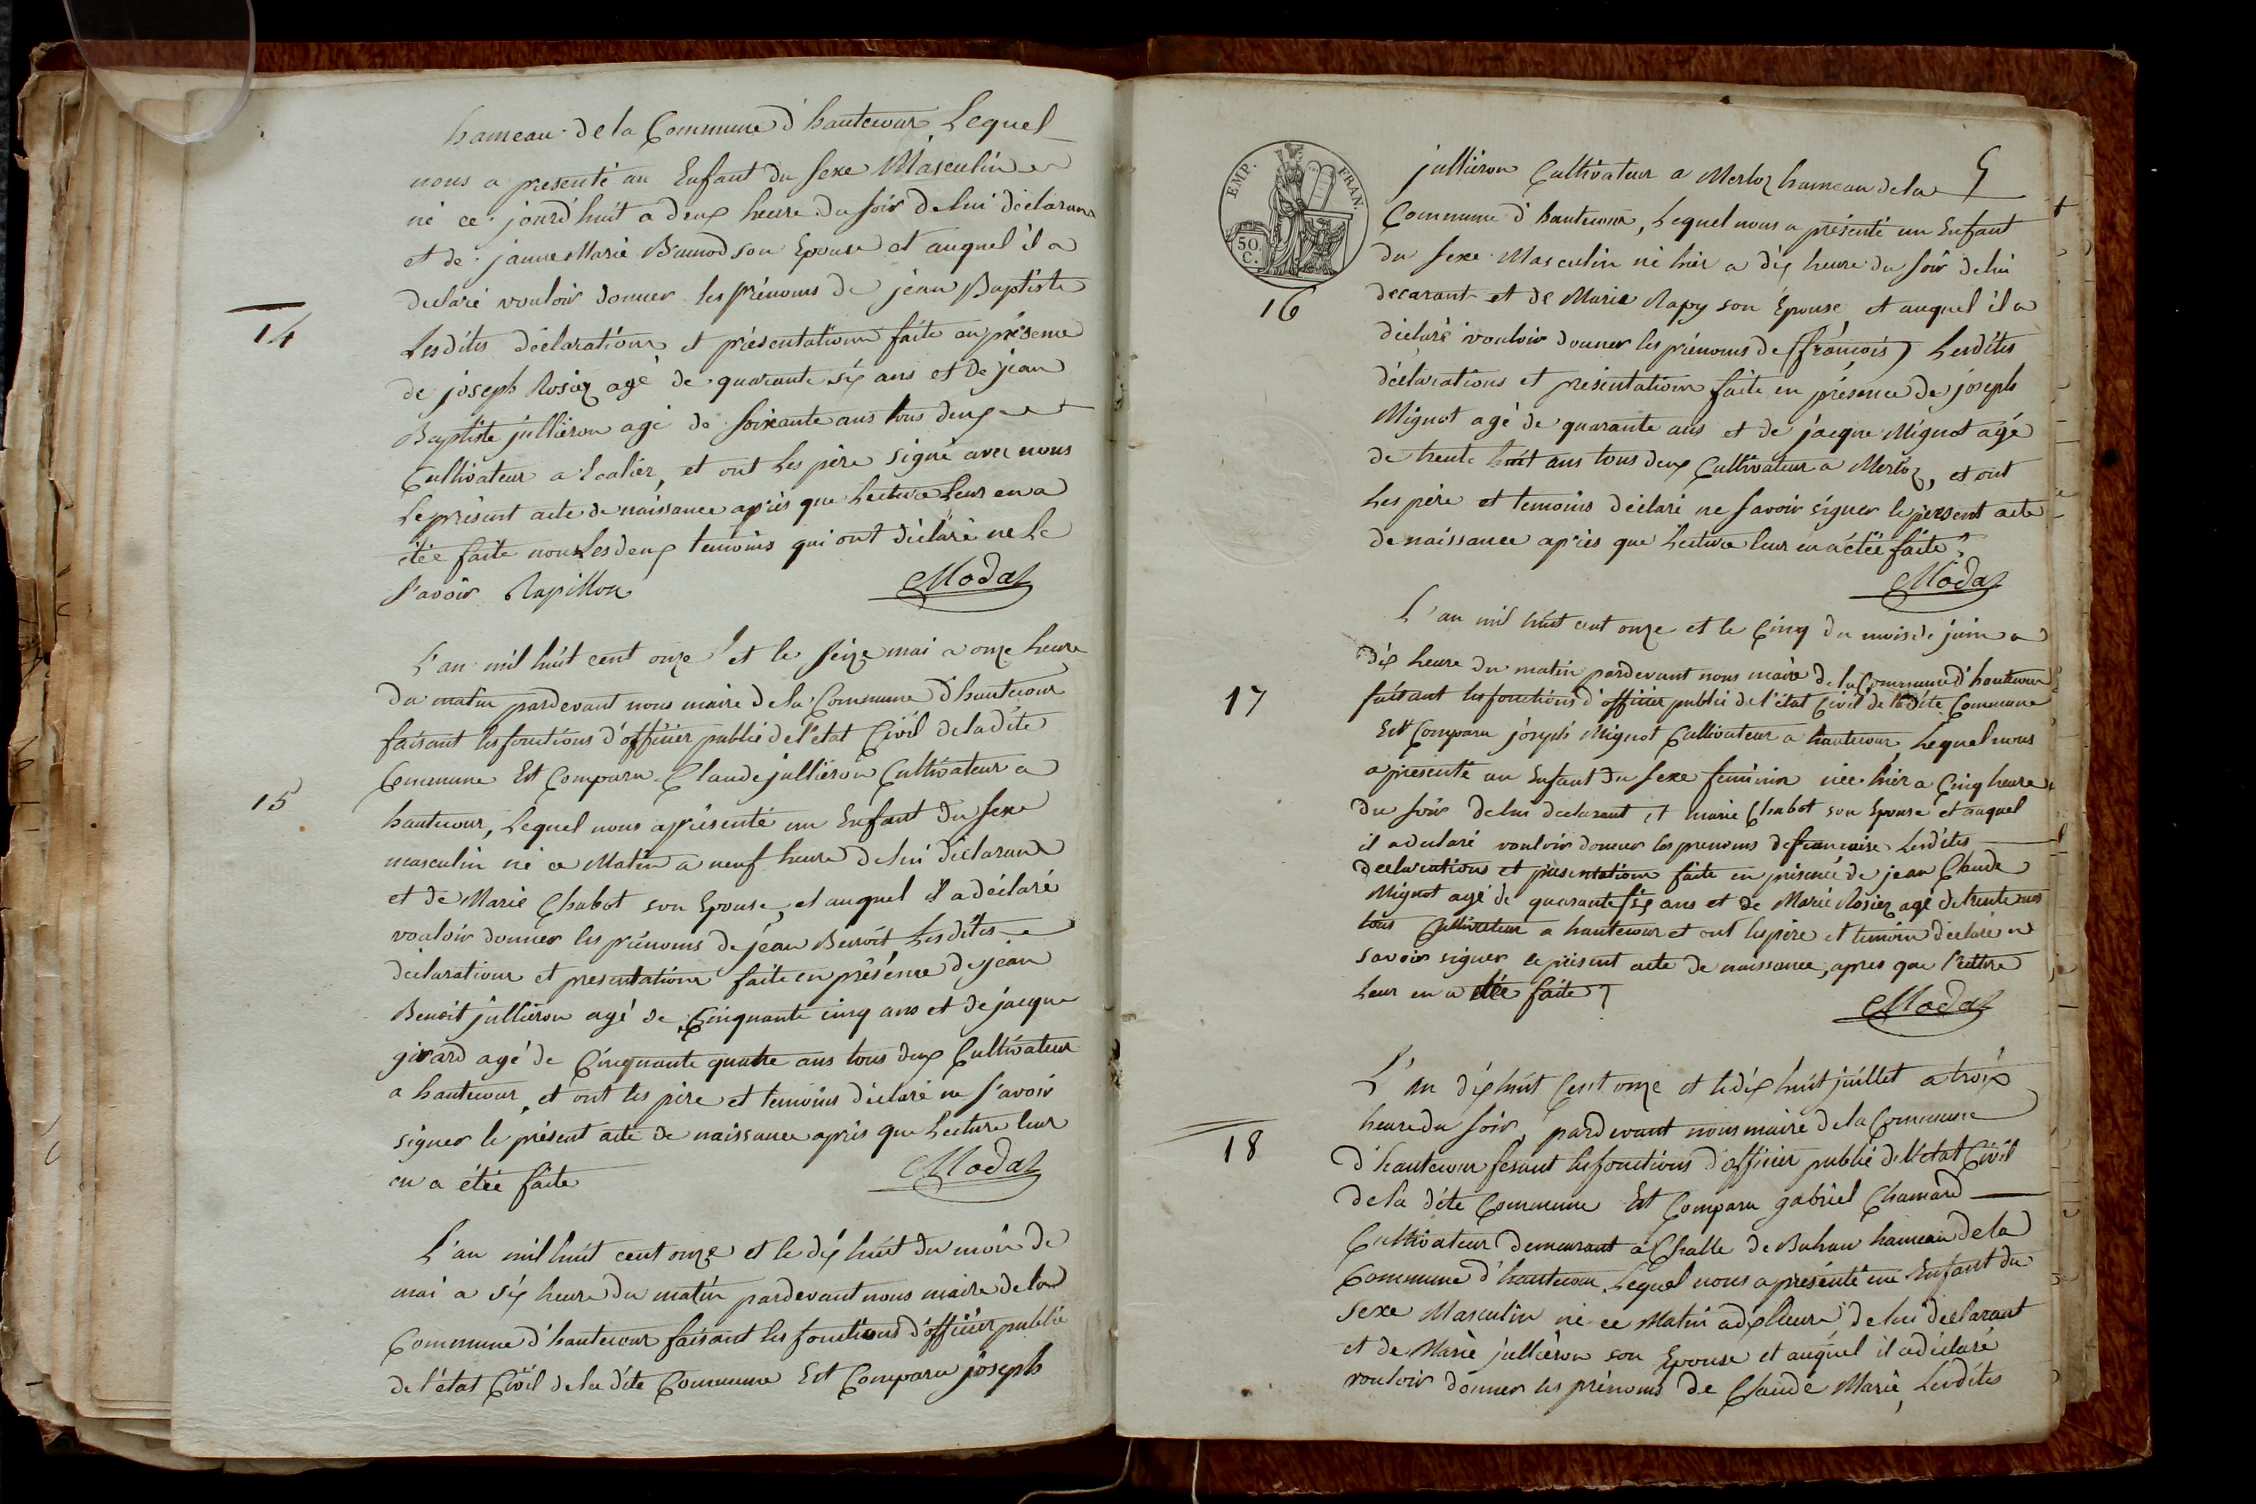 hameau de la Commune d'hautecour Lequel
nous a presenté un Enfant du sexe Masculin
né ce jourd'huit a deux heure du soir de lui déclarant
et de janne Marie Brunod son Epouse et auquel il a
declaré vouloir donner les prénoms de jean Baptiste
14
Lesdites déclarations et présentations faite en présence
de joseph Rosiez agé de quarante six ans et de jean
Baptiste jullieron agé de soixante ans tous deux
Cultivateur a, et ont les père signé avec nous
Le présent acte de naissance après que Lecture Leur en a
étée faite non Les deux temoins qui ont déclaré ne Le
savoir Rapillon
Modaz
L'an mil huit cent onze et le seize mai a onze heure
du matin pardevant nous maire de la Commune d'hautecour
faisant les fonctions d'officier public de l'etat Civil de la dite
Commune Est Comparu Claude jullieron Cultivateur a
15
hautecour, Lequel nous a présenté un Enfant du sexe
masculin né ce Matin a neuf heure de lui déclarant
et de Marie Chabot son Epouse, et auquel il a déclaré
vouloir donner les prénoms de jean Benoit Lesdites
déclarations et presentations faite en présence de jean
Benoit jullieron agé de Cinquante cinq ans et de jacque
girard agé de Cinquante quatre ans tous deux Cultivateur
a hautecour, et ont les père et temoins déclaré ne savoir
signer le présent acte de naissance après que Lecture leur
en a étée faite
Modaz
L'an mil huit cent onze et le dix huit du mois de
mai a six heure du matin pardevant nous maire de la
Commune d'hautecour faisant les fonctions d'officier public
de l'état Civil de la dite Commune Est Comparu joseph
EMP. FRAN.
50 C.
5
jullieron Cultivateur a Merloz hameau de la
Commune d'hautecour, Lequel nous a présenté un Enfant
du sexe Masculin né hier a dix heure du soir de lui
16
decarant et de Marie Rapy son Epouse et auquel il a
déclaré vouloir donner les prénoms de (françois) Lesdites
déclarations et présentations faite en présence de joseph
Mignot agé de quarante ans et de jacque Mignot agé
de trente huit ans tous deux Cultivateur a Merloz, et ont
Les père et temoins déclaré ne savoir signer le present acte
de naissance après que Lecture leur en a étée faite
Modaz
L'an mil huit cent onze et le Cinq du mois de juin a
dix heure du matin pardevant nous maire de la Commune d'hautecour
17
faisant les fonctions d'officier public de l'état Civil de la dite Commune
Est Comparu joseph Mignot Cultivateur a hautecour Lequel nous
a presenté un Enfant du sexe feminin née hier a Cinq heure
du soir de lui declarant et marie Chabot son Epouse et auquel
il a declaré vouloir donner les prenoms de Lesdites
declarations et présentations faite en présence de jean Claude
Mignot agé de quarante six ans et de Marie Rosiez agé de trente ans
tous Cultivateur a hautecour et ont les père et temoin déclaré ne
savoir signer le présent acte de naissance, apres que lecture
Leur en a étée faite
Modaz
L'an dix huit Cent onze et le dix huit juillet a trois
heure du soir, pardevant nous maire de la Commune
18
d'hautecour fesant les fonctions d'officier public de l'etat Civil
de la dite Commune Est Comparu gabriel Chamard
Cultivateur demeurant a Challe de hameau de la
Commune d'hautecour Lequel nous a présenté un Enfant du
sexe Masculin né ce Matin a dix heure de lui déclarant
et de Marie jullieron son Epouse et auquel il a déclaré
vouloir donner les prénoms de Claude Marie, Lesdites